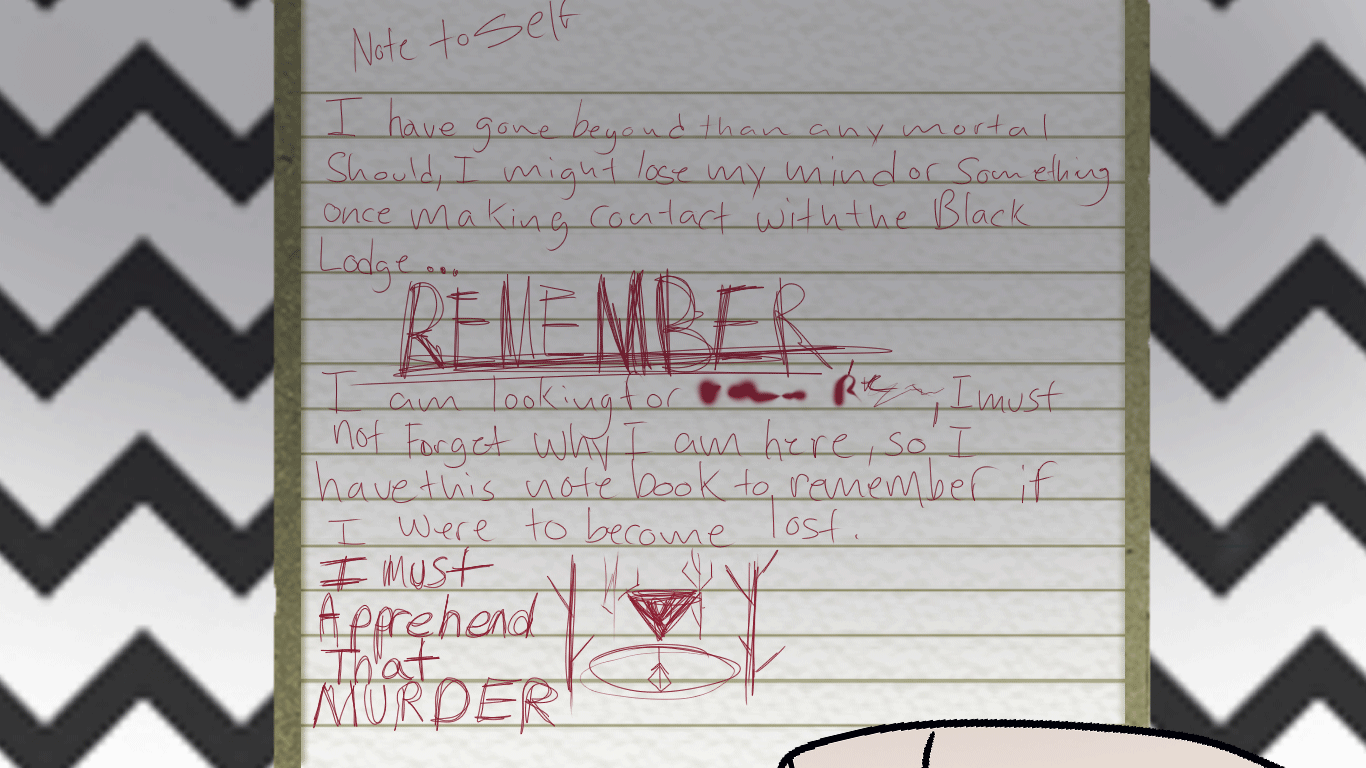 Note to Self
I have gone beyond than any mortal
Should, I might lose my mind or Something
once making contact with the Black
Lodge...
REMEMBER
I am looking for , I must
not Forget why I am here, so I
have this note book to remember if
I were to become lost.
I Must
Apprehend
That
MURDER